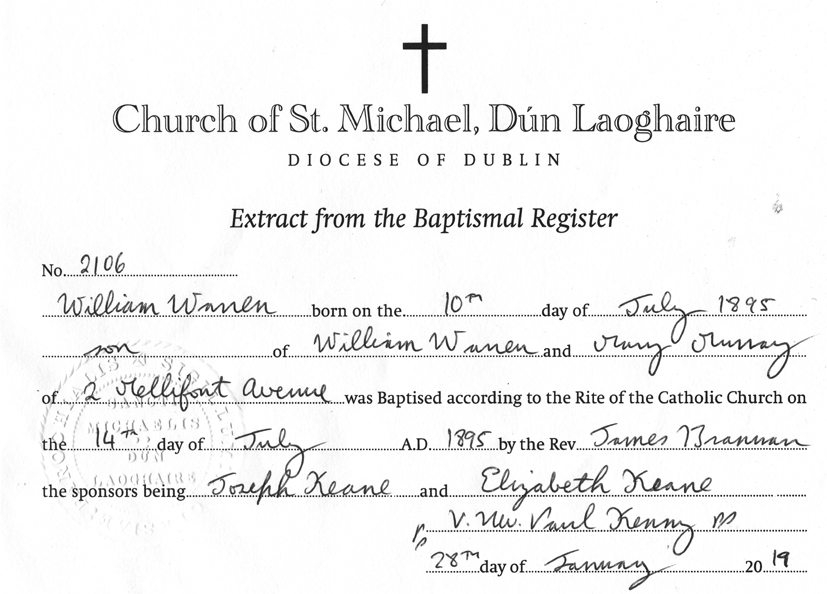 Church of St. Michael, Dún Laoghaire
DIOCESE OF DUBLIN
Extract from the Baptismal Register
No. 2106
William Warren born on the 10th day of July 1895
son of William Warren and Mary Murray
of 2 Mellifont Avenue was Baptised according to the Rite of the Catholic Church on
the 14th day of July A.D. 1895 by the Rev James Brannan
the sponsors being Joseph Keane and Elizabeth Keane
pp V. Rev. Paul Kenny
28TH day of January 2019
MICHAELIS
DUN
LAOGHAIRE